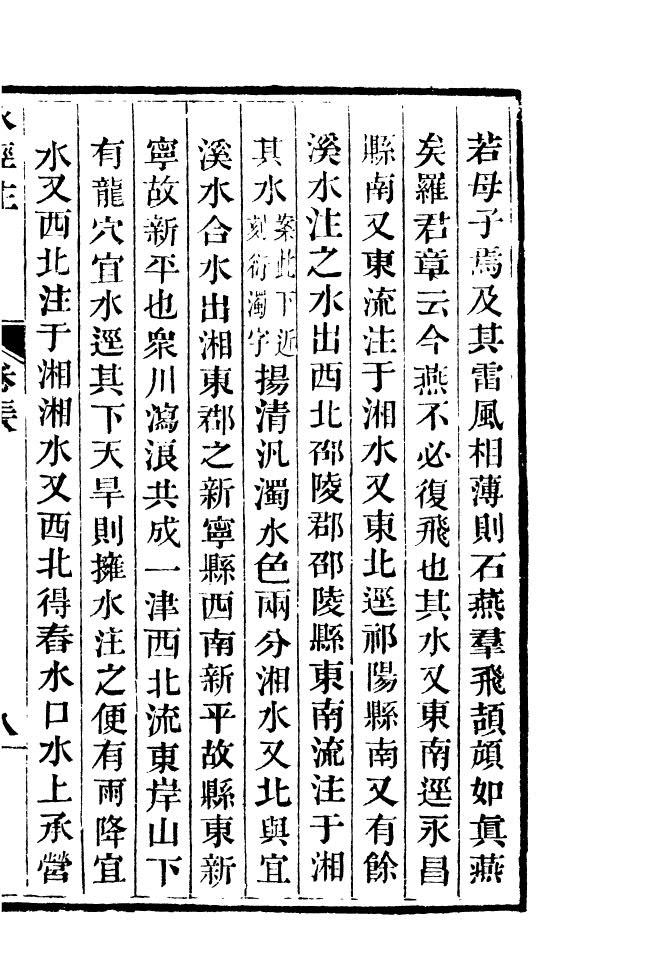 若母子焉及其雷風相薄則石燕羣飛頡頏如眞燕
矣羅君章云今燕不必復飛也其水又東南逕永昌
縣南又東流注于湘水又東北逕祁陽縣南又有餘
溪水注之水出西北邵陵郡邵陵縣東南流注于湘
其水案此下近刻衍濁字揚清汎濁水色兩分湘水又北與宜
溪水合水出湘東郡之新寧縣西南新平故縣東新
寧故新平也衆川瀉浪共成一津西北流東岸山下
有龍穴宜水逕其下天旱則擁水注之便有雨降宜
水又西北注于湘湘水又西北得舂水口水上承營
水經注
八